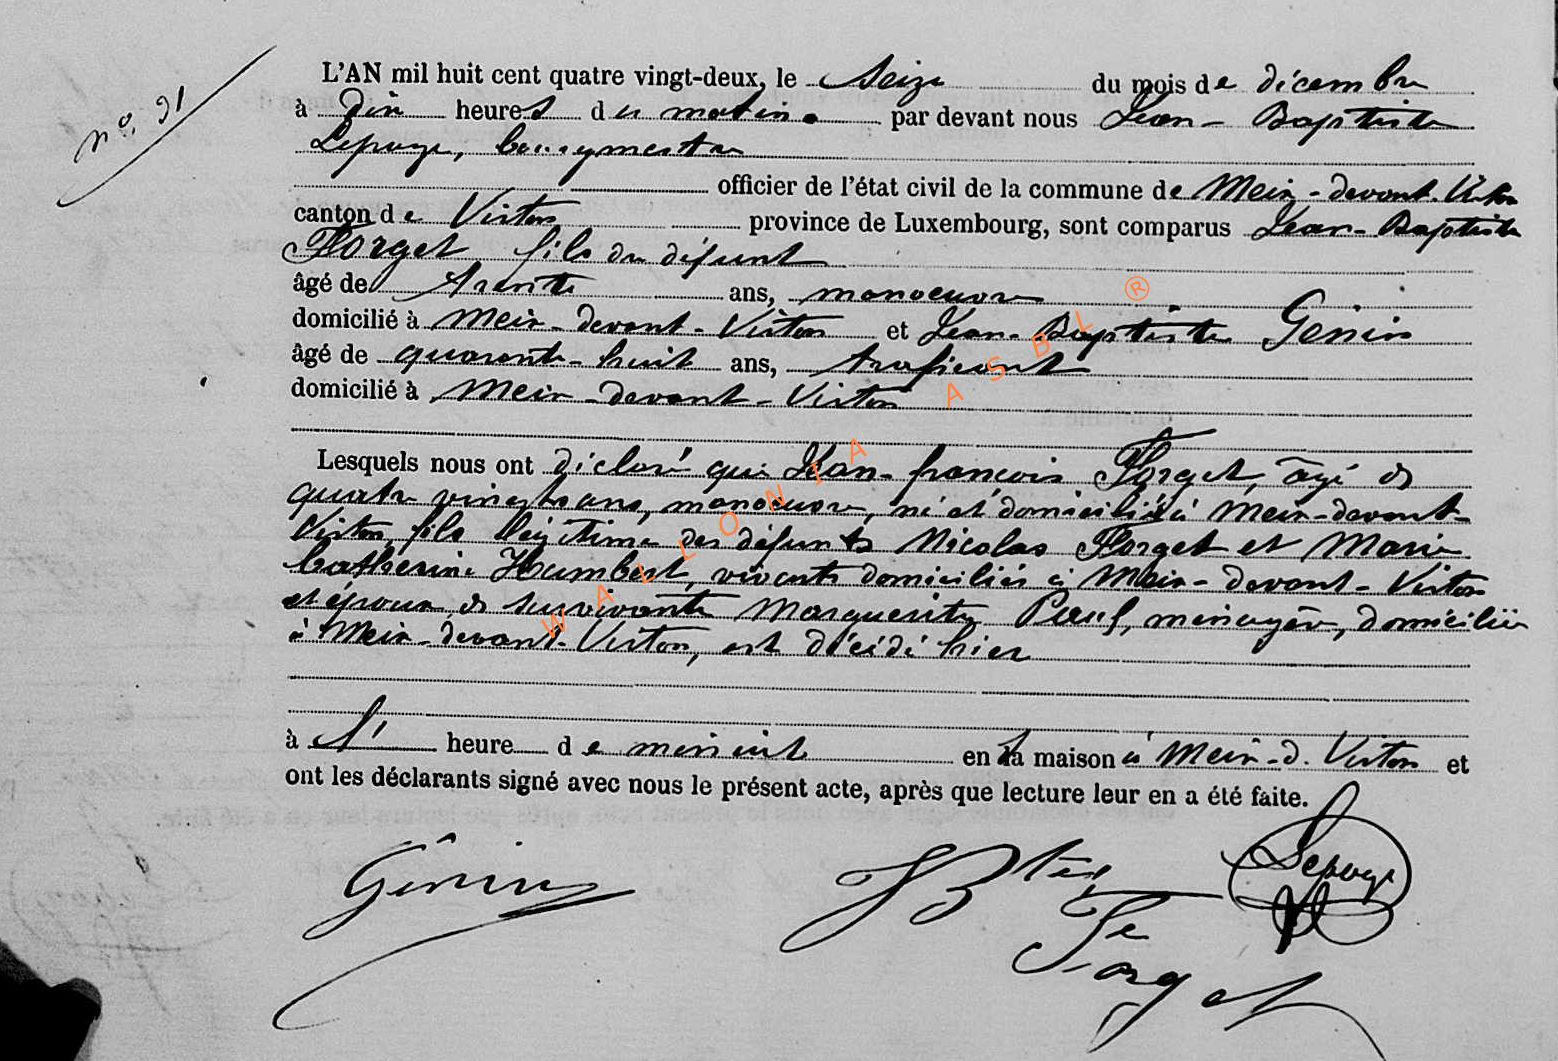 n° 31
L'AN mil huit cent quatre vingt-deux, le seize du mois de décembre
à dix heures du matin par devant nous Jean-Baptiste
Lepage, bourgmestre
officier de l'état civil de la commune de Meix-devant-Virton
canton de Virton province de Luxembourg, sont comparus Jean-Baptiste
Forget fils du défunt
âgé de trente ans, manoeuvre
domicilié à Meix-devant-Virton et Jean-Baptiste Génin
âgé de quarante-huit ans, traficant
domicilié à Meix-devant-Virton
Lesquels nous ont déclaré que Jean-françois Forget, âgé de
quatre vingts ans, manoeuvre, né et domicilié à Meix-devant-
Virton, fils légitime des défunts Nicolas Forget et Marie
Catherine Humbert, vivants domiciliés à Meix-devant-Virton
et époux de survivante Marguerite Pauf, ménagère, domiciliée
à Meix-devant-Virton, est décédé hier
à l' heure de minuit en sa maison à Meix-d.-Virton et
ont les déclarants signé avec nous le présent acte, après que lecture leur en a été faite.
Génin JBte Lepage
Forget
WALLONIA ASBL ®